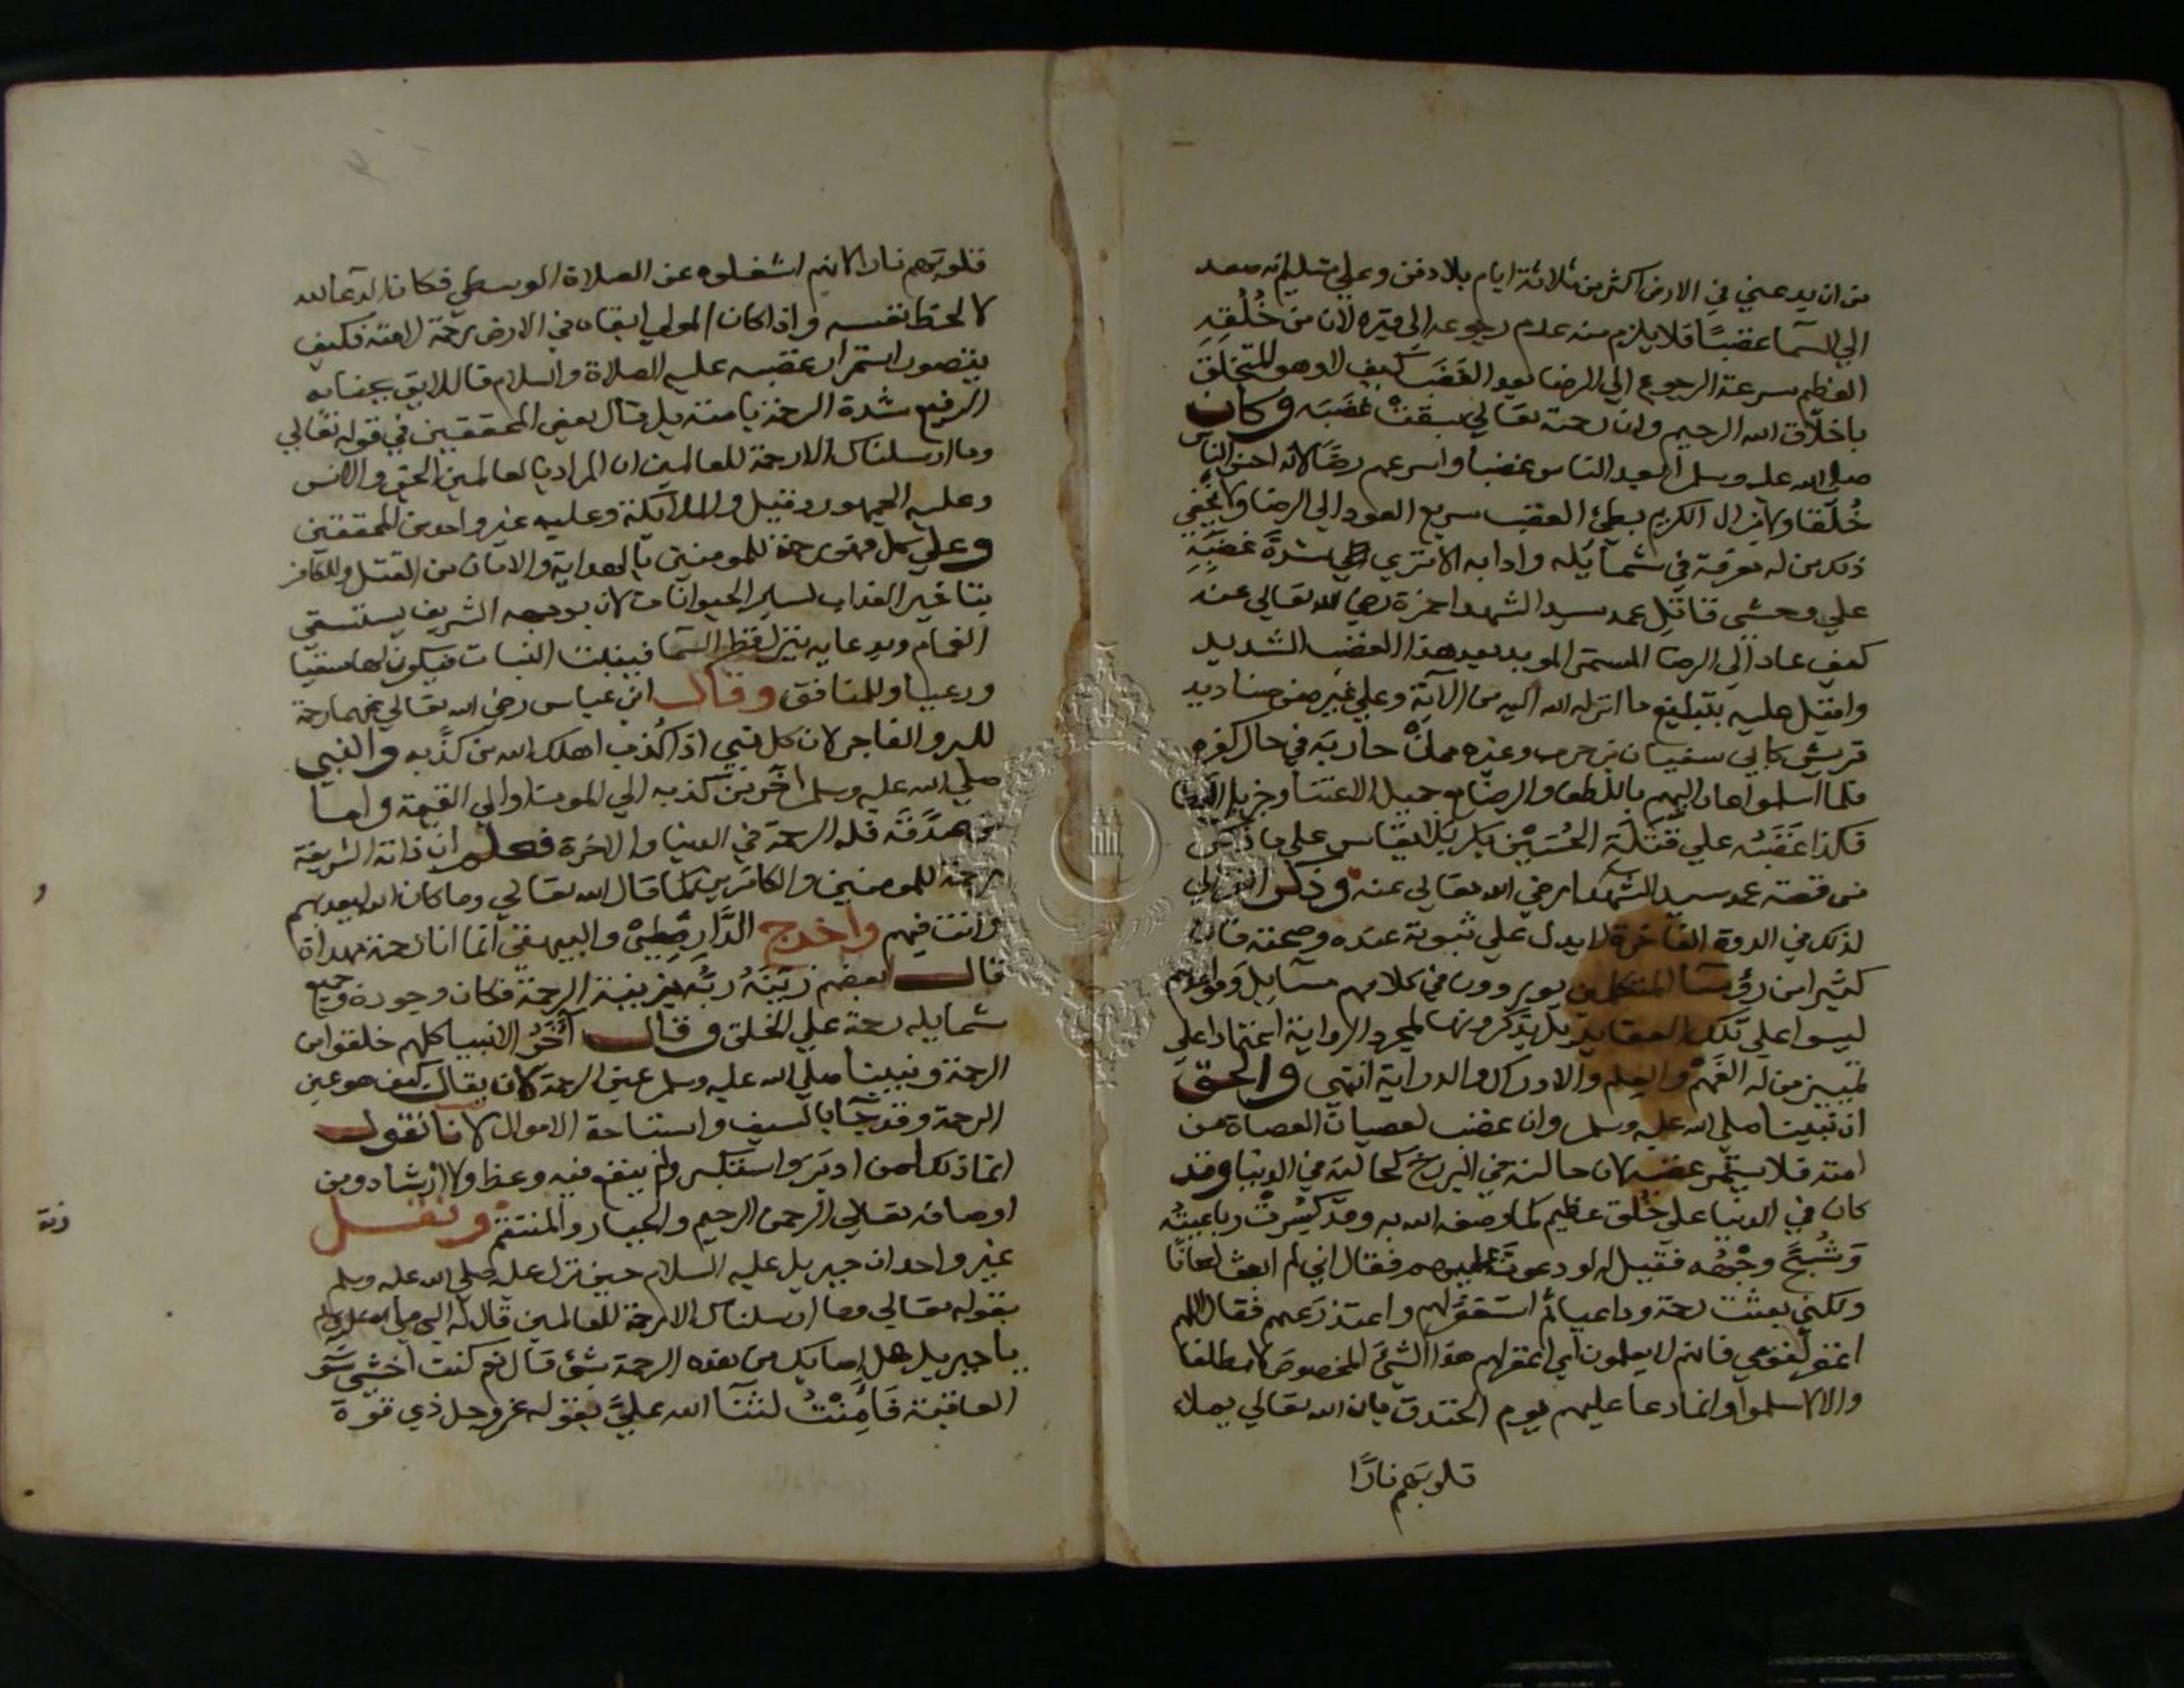 من ان يدعني في الارض اكثر من ثلاثة ايام بلا دفن وعلي تسليم انه صعد
الي السما غضبًا فلا يلزم منه عدم رجوعه الي قبره لان من خُلُقِهِ
العظيم سرعة الرجوع الي الرضا بعد الغَضَب كيف لا وهو المتخلق
باخلاق الله الرحيم وان رحمته تعالي سبقتْ غضبَه وكان
صلي الله عليه وسلم ابعد الناس غضبا واسرعهم رضًا لانه احسن الناس
خُلقا ولا يزال الكريم بطئ الغضب سريع العود الي الرضا ولا يخفي
ذلك من له معرفة في شمائله وادابه الا تري الي شدة غضبِهِ
علي وحشي قاتل عمه سيد الشهدا حمزة رضي الله تعالي عنه
كيف عاد الي الرضا المستمر المويد بعد هذا الغضب الشديد
واقبل عليه بتبليغ ما انزله الله اليه من الآية وعلي غيره من صناديد
قريش كابي سفيان بن حرب وغيره ممن حاربه في حال كفره
فلما اسلموا عاد اليهم باللطف والرضا مع جميل الاعتنا وجزيل
فكذا غَضَبُه علي قَتَلَة الحُسَيْن بكربلا يقاس على ما ذكر
من قصة عمه سيد الشهدا رضي الله تعالي عنه وذكر الغزالي
لذلك في الدرة الفاخرة لا يدل علي ثبوته عنده وصحته فان
كثيرا من رؤسا المتكلمين يوردون في كلامهم مسايل وقواعدهم
ليسوا علي تلك العقايد بل يذكرونها لمجرد الرواية اعتمادا علي
تمييز من له الفَهْم والعِلم والادراك والدراية انتهي والحق
ان نبينا صلي الله عليه وسلم وان غضب لعصيان العصاة من
امته فلا يستمر غضبه لان حالته في البرزخ كحالته في الدنيا وقد
كان في الدنيا علي خُلق عظيم كما وصفه الله به وقد كُسِرتْ رباعيتُه
وَشُجَّ وجْهُه فقيل له لو دعوتَ عليهم فقال اني لم ابعث لعانًا
ولكني بعثت رحمة وداعيا ثم استغفر لهم واعتذر عنهم فقال اللهم
اغفر لقومي فانهم لا يعلمون اي اغفر لهم هذا الشيَ المخصوص لا مطلقا
والا لاسلموا وانما دعا عليهم يوم الخندق بان الله تعالي يملا
قلوبَهم نارًا
قلوبَهم نارا لانهم اشغلوه عن الصلاة الوسطي فكان الدعا لله
لا لحظ نفسه واذا كان المولي ابقاه في الارض رحمة لامته فكيف
يتصور استمرار غضبه عليه الصلاة والسلام فاللايق بجنابه
الرفيع شدة الرحمة بامته بل قال بعض المحققين في قوله تعالي
وما ارسلناك الا رحمة للعالمين ان المراد بالعالمين الجن والانس
وعليه الجمهور وقيل والملايكة وعليه غير واحد من المحققين
وعلي كل فهو رحمة للمومنين بالهداية والامان من القتل وللكافر
بتاخير العذاب لساير الحيوانات لان بوجهه الشريف يستسقي
الغمام وبدعايه ينزل قطر السما فينبت النبات فيكون لها سقيا
ورعيا وللمنافق وقال ابن عباس رضي الله تعالي عنهما رحمة
للبر والفاجر لان كل نبي اذا كُذب اهلك الله من كذّبه والنبي
صلي الله عليه وسلم اخر من كذبه الي الموت او الي القيمة واما
من صدَّقه فله الرحمة في الدنيا والاخرة فعلم ان ذاته الشريفة
رحمة للمومنين والكافرين كما قال الله تعالي وما كان الله ليعذبهم
وانت فيهم واخرج الدَّارقُطني والبيهقي انما انا رحمة مهداة
قال بعضهم زيَّنَهُ ربُّه بزينة الرحمة فكان وجوده وجميع
شمايله رحمة علي الخلق وقال آخَرُ الانبيا كلهم خلقوا من
الرحمة ونبينا صلي الله عليه وسلم عين الرحمة لا ان يقال كيف هو عين
الرحمة وقد جآ بالسيف واستباحة الاموال لانا نقول
انما ذلك لمن ادبَرَ واستكبر ولم ينفع فيه وعظ ولا ارشاد ومن
اوصافه تعالي الرحمن الرحيم والجبار والمنتقم ونقل
غير واحد ان جبريل عليه السلام حين نزل عليه صلي الله عليه وسلم
بقوله تعالي وما ارسلناك الا رحمة للعالمين قال له النبي صلي الله عليه وسلم
يا جبريل هل اصابك من هذه الرحمة شئ قال نعم كنت اخشي سُوَ
العاقبة فَأَمِنْتُ لثنآ الله عليَّ بقوله عز وجل ذي قوة